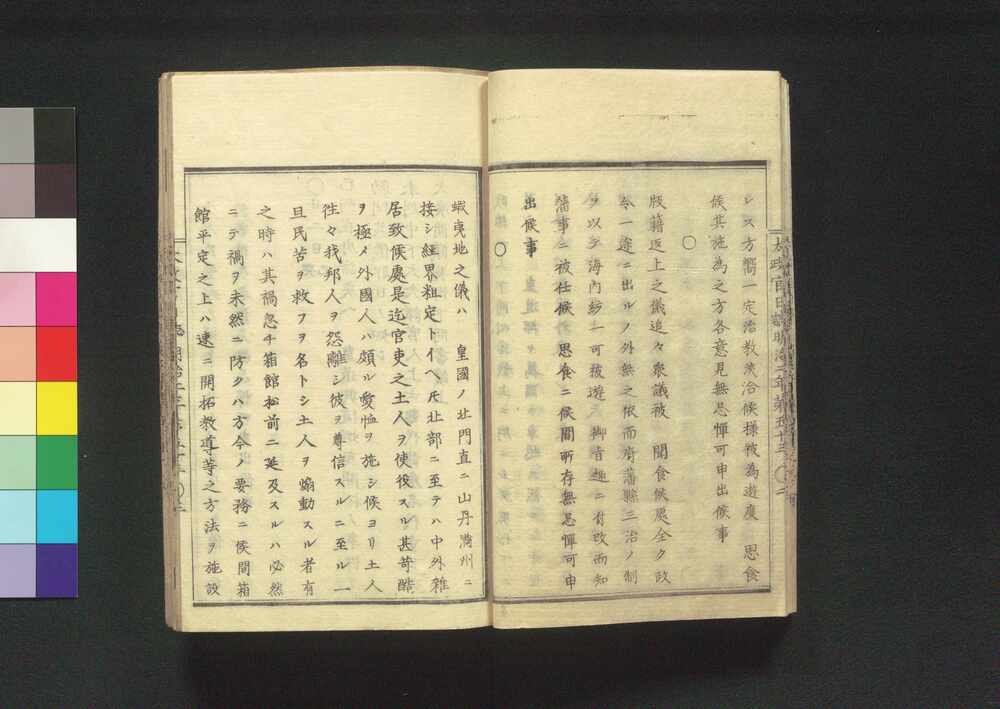 シス方嚮一定治教浹洽候樣被為遊度　思食
候其施為之方各意見無忌憚可申出候事
○
版籍返上之儀追々衆議被　聞食候處全ク政
令一途ニ出ルノ外無之依而府藩縣三治ノ制
ヲ以テ海内統一可被遊　御旨趣ニ付改而知
藩事ニ被任候　思食ニ候間所存無忌憚可申
出候事
○
蝦夷地之儀ハ　皇國ノ北門直ニ山丹滿州ニ
接シ經界粗定トイヘ𪜈北部ニ至テハ中外雜
居致候處是迄官吏之土人ヲ使役スル甚苛酷
ヲ極メ外國人ハ頗ル愛恤ヲ施シ候ヨリ土人
徃々我邦人ヲ怨離シ彼ヲ尊信スルニ至ル一
旦民苦ヲ救フヲ名トシ土人ヲ煽動スル者有
之時ハ其禍忽チ箱館松前ニ延及スルハ必然
ニテ禍ヲ未然ニ防クハ方今ノ要務ニ候間箱
館平定之上ハ速ニ開拓教導等之方法ヲ施設